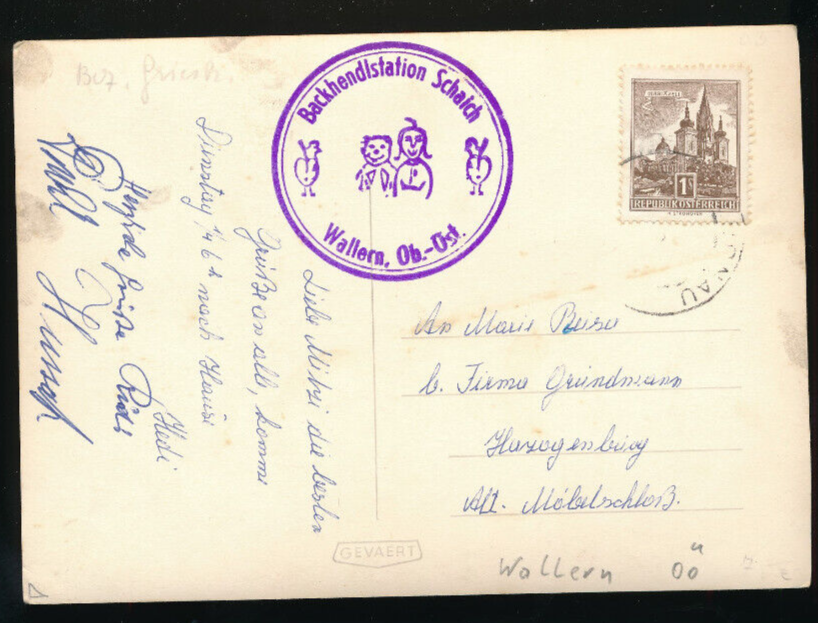 Bez. Griesk.
Backhendlstation Schaich
Wallern, Ob.-Öst.
1 S
REPUBLIK ÖSTERREICH
NAU
Liebe Mitzi die besten
Grüße an alle, komme
Dienstag nach Hause
Hedi
Herzliche Grüße Rudi
An Marie
b. Firma Grundmann
Herzogenburg
Abt. Möbelschloß.
GEVAERT
Wallern OÖ